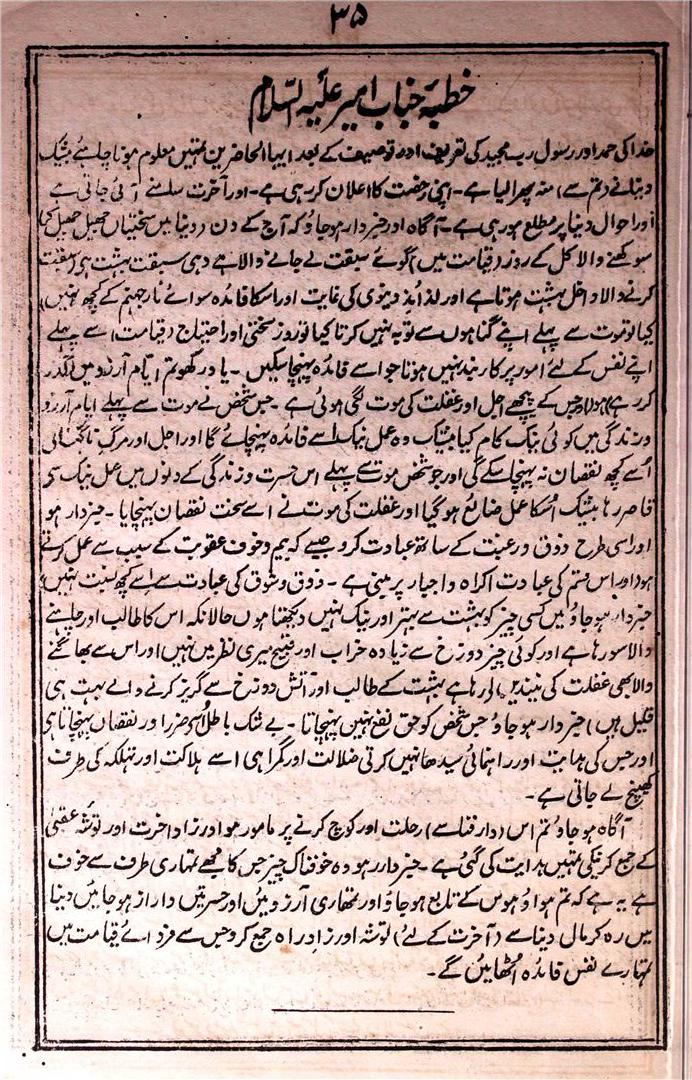 ۳۵
خطبۂ جناب امیر علیہ السلام
خدا کی حمد اور رسول رب مجید کی تعریف اور توصیف کے بعد ایہا الحاضرین تمہیں معلوم ہونا چاہئے بیشک
دنیا نے (تم سے) منہ پھرا لیا ہے۔ اپنی رخصت کا اعلان کر رہی ہے۔ اور آخرت سامنے آئی جاتی ہے
اور احوال دنیا پر مطلع ہو رہی ہے۔ آگاہ اور خبردار ہو جاؤ کہ آج کے دن (دنیا میں سختیاں جھیل جھیل کر)
سوکھنے والا کل کے روز (قیامت میں) گوئے سبقت لے جانے والا ہے وہی سبقت بہشت ہی (سبقت
کرنے والا داخل بہشت ہوتا ہے اور لذائذ دنیوی کی غایت اور اسکا فائدہ سوائے نار جہنم کے کچھ نہیں)
کیا تو موت سے پہلے اپنے گناہوں سے توبہ نہیں کرتا کیا تو روز سختی اور احتیاج (قیامت) سے پہلے
اپنے نفس کے لئے امور پر کاربند نہیں ہوتا جو اسے فائدہ پہنچا سکیں۔ یاد رکھو تم ایام آرزو میں (گذر
کر رہے) ہو اور جس کے پیچھے اجل اور غفلت کی موت لگی ہوئی ہے۔ جس شخص نے موت سے پہلے ایام آرزو
و زندگی میں کوئی نیک کام کیا بیشک وہ عمل نیک اسے فائدہ پہنچائے گا اور اجل اور مرگ ناگہانی
اُسے کچھ نقصان نہ پہنچا سکے گی اور جو شخص موت سے پہلے اس حسرت و زندگی کے دنوں میں عمل نیک سی
قاصر رہا بیشک اُسکا عمل ضائع ہو گیا اور غفلت کی موت نے اسے سخت نقصان پہنچایا۔ خبردار ہو
اور اسی طرح ذوق و رغبت کے ساتھ عبادت کرو جیسے کہ بیم و خوف عقوبت کے سبب سے عمل کرتے
ہو (اور اس قسم کی عبادت اکراہ و اجبار پر مبنی ہے۔ ذوق و شوق کی عبادت سے اسے کچھ نسبت نہیں)
خبردار ہو جاؤ میں کسی چیز کو بہشت سے بہتر اور نیک نہیں دیکھتا ہوں حالانکہ اس کا طالب اور چاہنے
والا سو رہا ہے اور کوئی چیز دوزخ سے زیادہ خراب اور قبیح میری نظر میں نہیں اور اس سے بھاگنے
والا بھی غفلت کی نیندیں لے رہا ہے بہشت کے طالب اور آتش دوزخ سے گریز کرنے والے بہت ہی
قلیل ہیں) خبردار ہو جاؤ جس شخص کو حق نفع نہیں پہنچاتا۔ بے شک باطل اُسے ضرر اور نقصان پہنچاتا ہی
اور جس کی ہدایت اور راہنمائی سیدھا نہیں کرتی ضلالت اور گمراہی اسے ہلاکت اور تہلکہ کی طرف
کھینچ لے جاتی ہے۔
آگاہ ہو جاؤ تم اس (دار فنا سے) رحلت اور کوچ کرنے پر مامور ہو اور زاد آخرت اور توشہ عقبیٰ
کے جمع کرنیکی تمہیں ہدایت کی گئی ہے۔ خبردار رہو وہ خوفناک چیز جس کا مجھے تمہاری طرف سے خوف
ہے یہ ہے کہ تم ہوا و ہوس کے تابع ہو جاؤ اور تمہاری آرزوئیں اور حسرتیں دراز ہو جائیں دنیا
میں رہ کر مال دنیا سے (آخرت کے لئے) توشہ اور زاد راہ جمع کرو جس سے فردائے قیامت میں
تمہارے نفس فائدہ اُٹھائیں گے۔